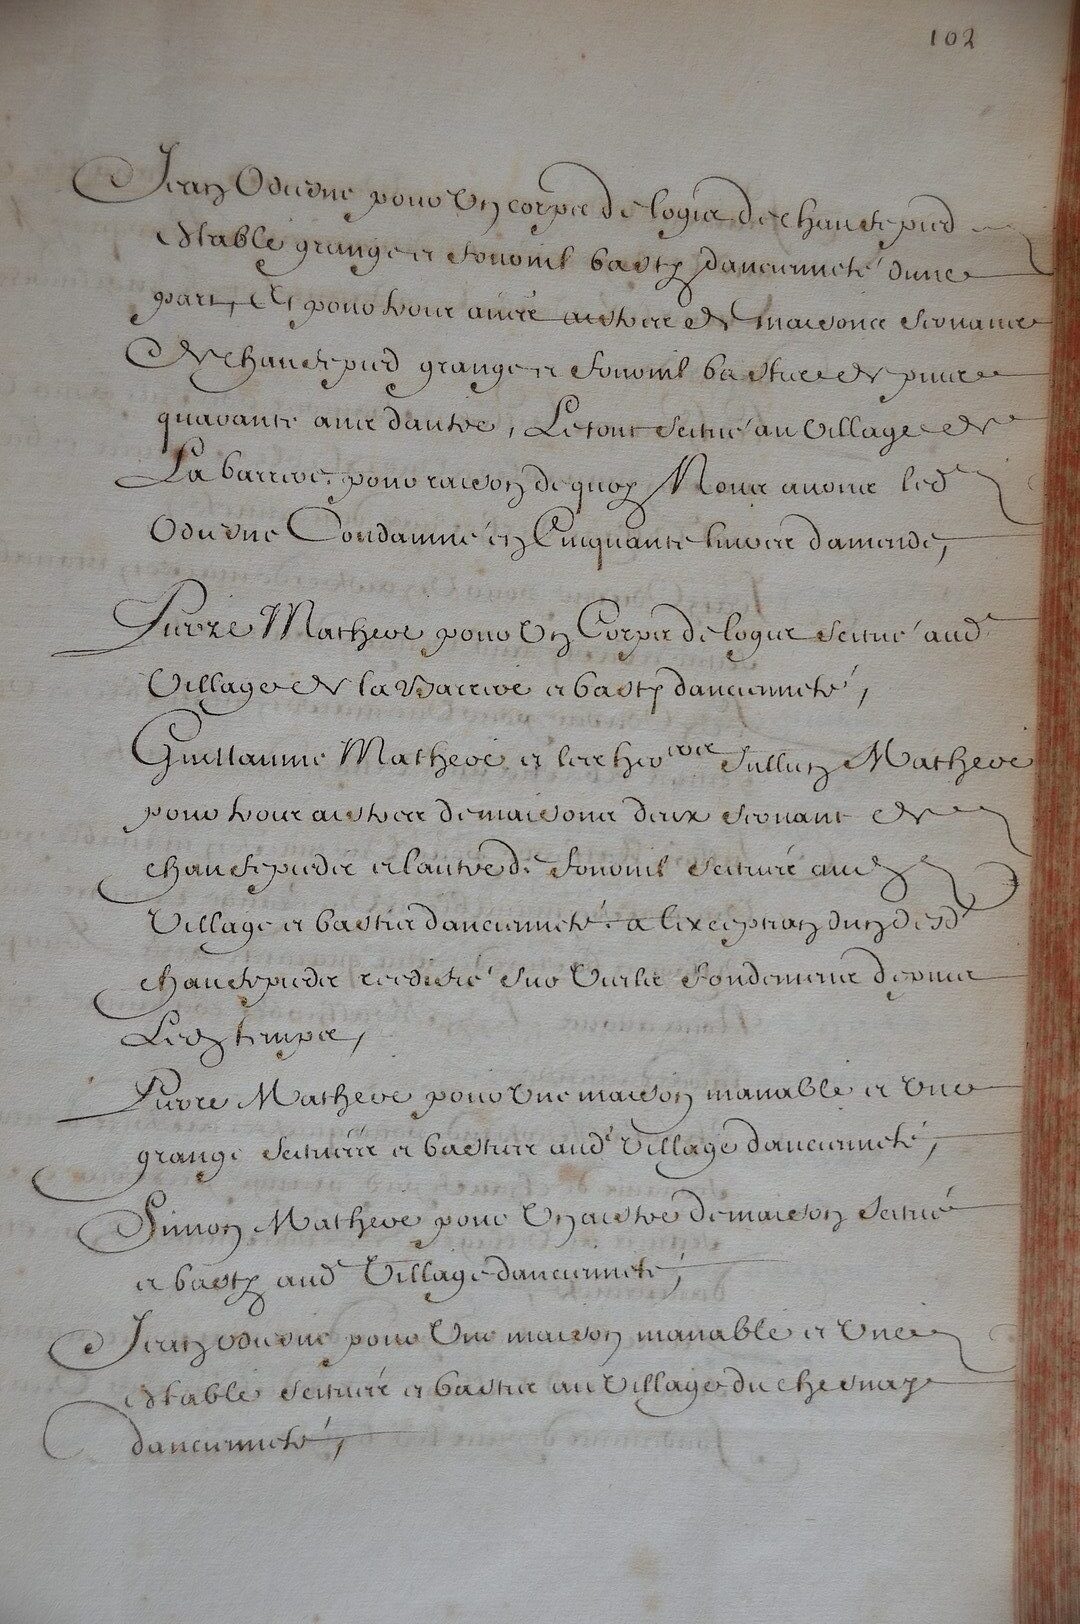 102
Jean Odierne pour Un corps de logis de chaufepied
Estable grange et fournil basty danciennete dune
part, Et pour trois aures aistres de maisons servants
de chaufepied grange et fournil basties depuis
quarante ans dautre, Le tout scitué au Village de
La barriere, pour raison de quoy Nous avons led
Odierne Condamné en Cinquante livres damende,
Pierre Mathere pour Un Corps de logis scitué aud
Village de la Barriere et basty dancienneté,
Guillaume Mathere et les her iers Jullien Mathere
pour trois aistres de maisons deux servant de
chaufepieds et lautre de fournil scitués aud
Village et basties dancienneté a lexception dun desd
chaufepieds reedifié sur Vieils fondemens depuis
Led temps,
Pierre Mathere pour Une maison manable et Une
grange scituées et basties aud Village dancienneté,
Simon Mathere pour Un aistre de maison scitué
et basty aud Village dancienneté,
Jean odierne pour Une maison manable et Une
estable scitués et basties au Village du chesnay
dancienneté,